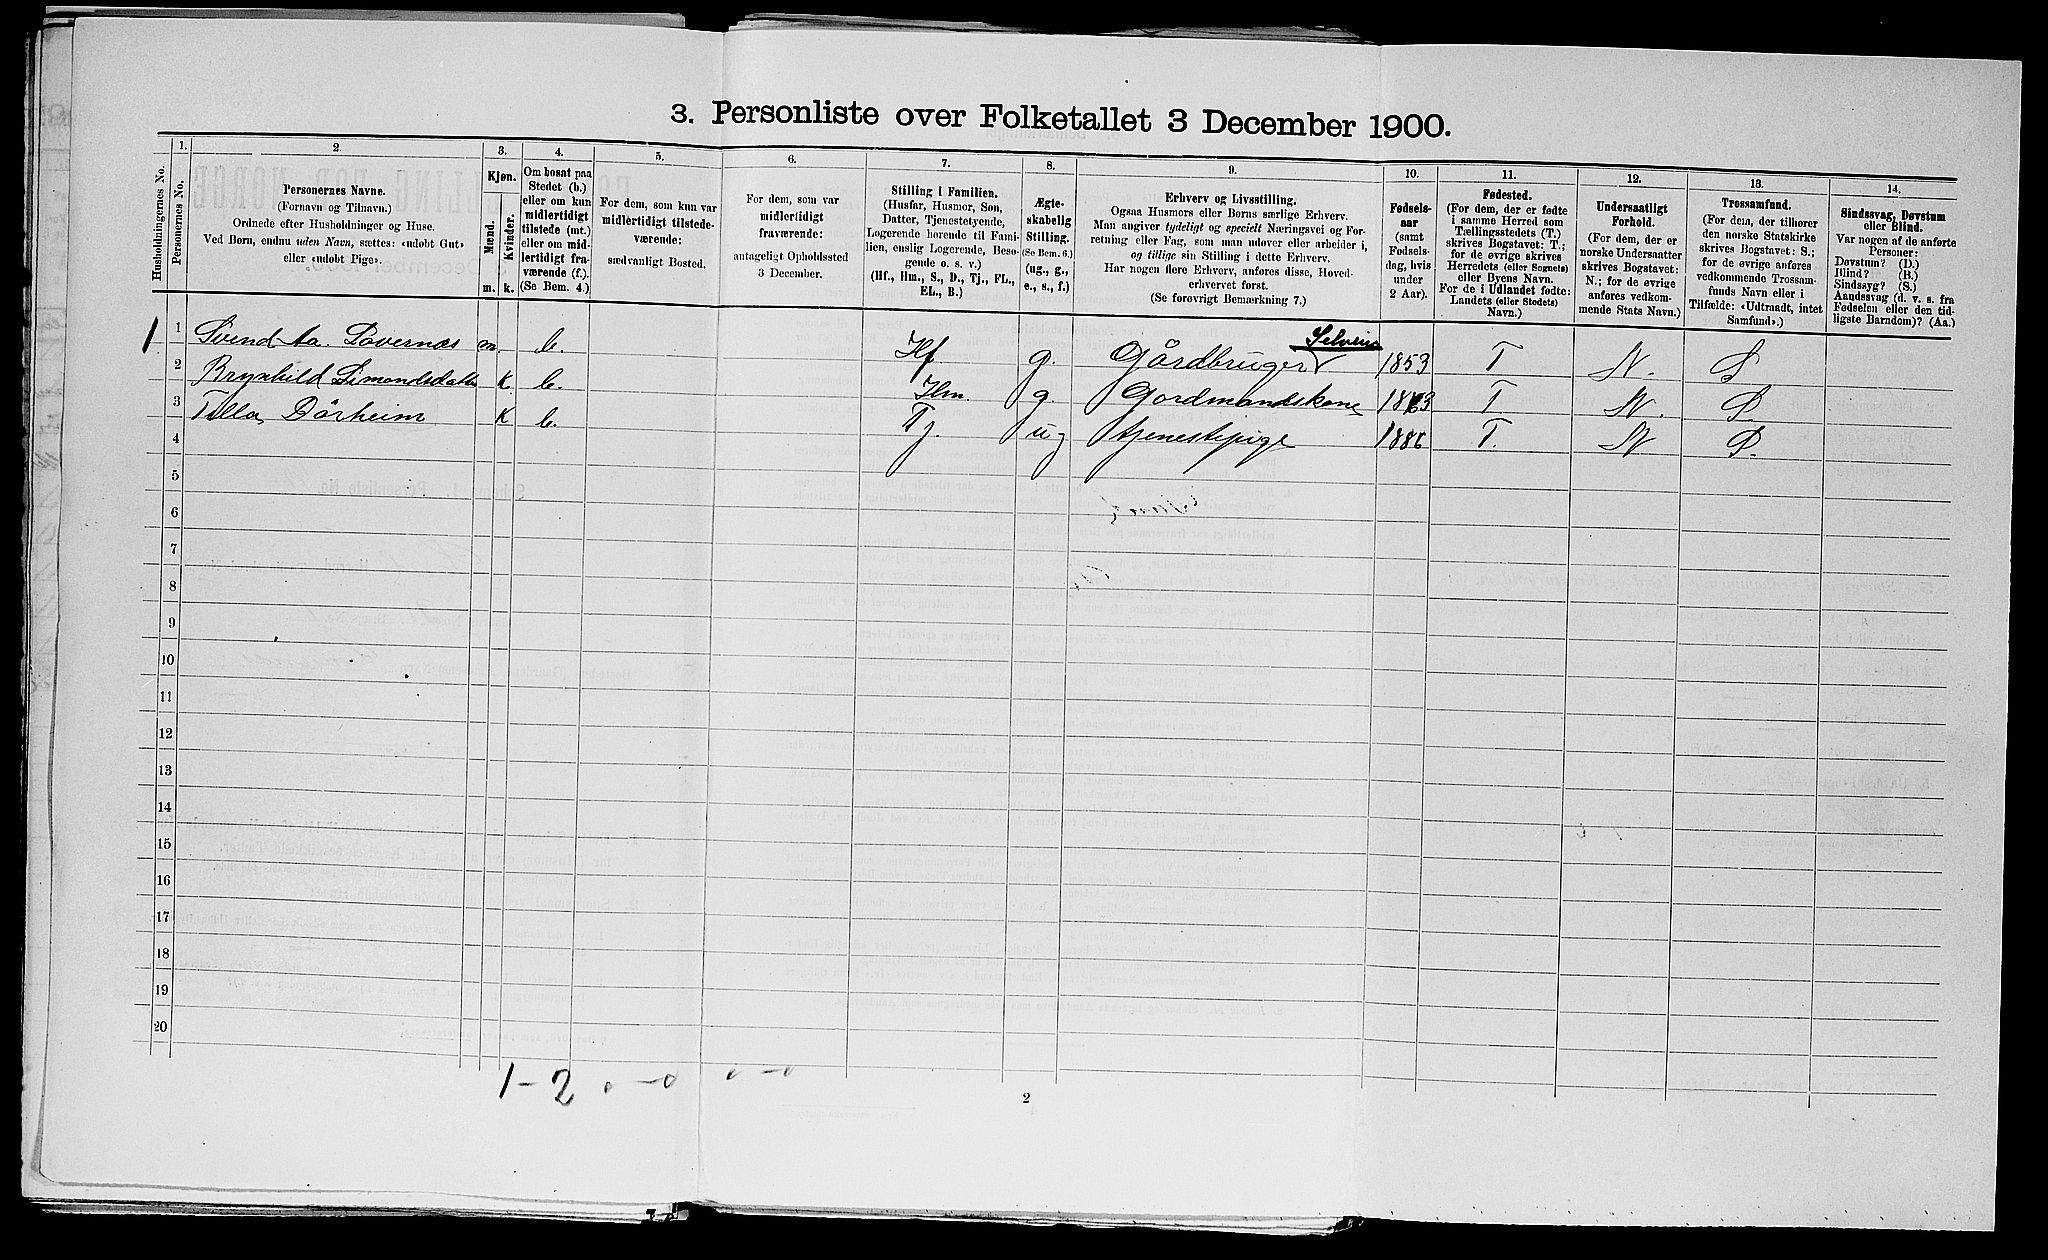 3. Personliste over Folketallet 3 December 1900.
Husholdningernes No.
1.
Personernes No.
2.
Personernes Navne.
(Fornavn og Tilnavn.)
Ordnede efter Husholdninger og Huse.
Ved Børn, endnu uden Navn, sættes: «udøbt Gut»
eller «udøbt Pige».
3.
Kjøn.
Mænd.
Kvinder.
m.
k.
4.
Om bosat paa
Stedet (b.)
eller om kun
midlertidigt
tilstede (mt.)
eller om mid-
lertidigt fra-
værende (f.).
(Se Bem. 4.)
5.
For dem, som kun var
midlertidigt tilstede-
værende:
sædvanligt Bosted.
6.
For dem, som var
midlertidigt
fraværende:
antageligt Opholdssted
3 December.
7.
Stilling i Familien.
(Husfar, Husmor, Søn,
Datter, Tjenestetyende,
Logerende hørende til Fami-
lien, enslig Logerende, Besø-
gende o. s. v.)
(Hf., Hm., S., D., Tj., FL.,
EL., B.)
8.
Ægte-
skabelig
Stilling.
(Se Bem. 6.)
(ug., g.,
e., s., f.)
9.
Erhverv og Livsstilling.
Ogsaa Husmors eller Børns særlige Erhverv.
Man angiver tydeligt og specielt Næringsvei og For-
retning eller Fag, som man udøver eller arbeider i,
og tillige sin Stilling i dette Erhverv.
Har nogen flere Erhverv, anføres disse, Hoved-
erhvervet først.
(Se forøvrigt Bemærkning 7.)
10.
Fødsels-
aar
(samt
Fødsels-
dag, hvis
under
2 Aar).
11.
Fødested.
(For dem, der er fødte
i samme Herred som
Tællingsstedets (T.)
skrives Bogstavet: T.;
for de øvrige skrives
Herredets (eller Sognets)
eller Byens Navn.
For de i Udlandet fødte:
Landets (eller Stedets)
Navn.)
12.
Undersaatligt
Forhold.
(For dem, der er
norske Undersaatter
skrives Bogstavet:
N.; for de øvrige
anføres vedkom-
mende Stats Navn.)
13.
Trossamfund.
(For dem, der tilhører
den norske Statskirke
skrives Bogstavet: S.;
for de øvrige anføres
vedkommende Trossam-
funds Navn eller i
Tilfælde: «Udtraadt, intet
Samfund».)
14.
Sindssvag, Døvstum
eller Blind.
Var nogen af de anførte
Personer:
Døvstum? (D.)
Blind? (B.)
Sindssyg? (S.)
Aandssvag (d. v. s. fra
Fødselen eller den tid-
ligste Barndom)? (Aa.)
Selveier
1 1 Svend Aa. Løvernæs m. b. Hf. g. Gårdbruger 1853 T N. S
2 Brynhild Simondsdatter K b. Hm. g. Gordmandskone T. N. S
3 Tilla Dörheim K b. Tj. ug tjenestepige 1886 T. N S.
4
5
6
7
8
9
10
11
12
13
14
15
16
17
18
19
20
1-2 0-0 0-0
2